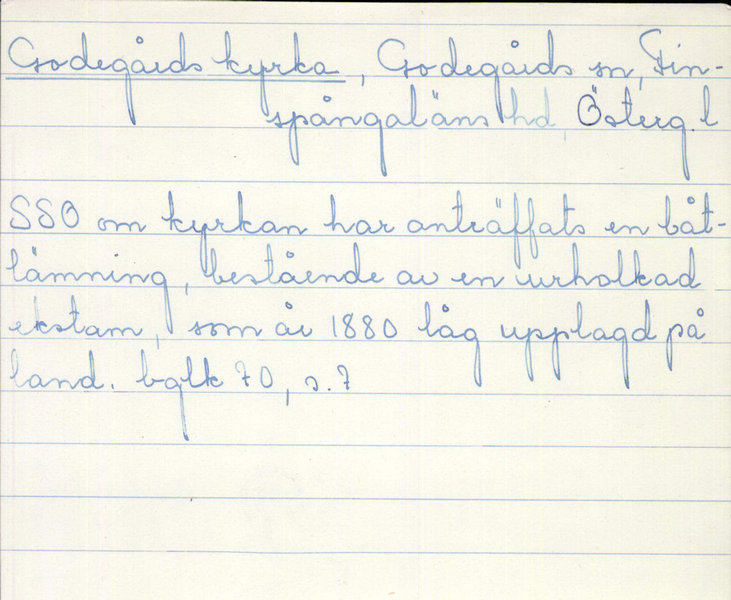 Godegårds kyrka, Godegårds sn, Fin-
spångaläns hd, Österg. l
SSO om kyrkan har anträffats en båt-
lämning, bestående av en urholkad
ekstam, som år 1880 låg upplagd på
land. bglk 70, s. 7